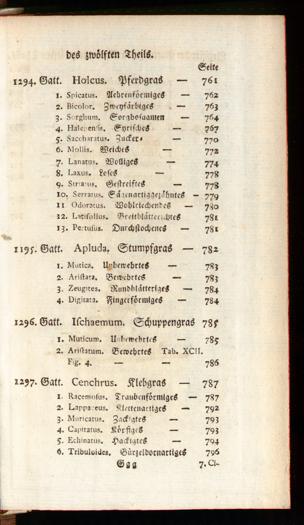 des zwölften Theils.
Seite
1294. Gatt. Holcus. Pferdgras — 761
1. Spicatus. Aehrenförmiges — 762
2. Bicolor. Zweyfärbiges — 763
3. Sorghum. Sorghosaamen — 764
4. Halepensis. Syrisches — 767
5. Saccharatus. Zucker- — 770
6. Mollis. Weiches — 772
7. Lanatus. Wolliges — 774
8. Laxus. Loses — 778
9. Striatus. Gestreiftes — 778
10. Serratus. Sägenartiggezähntes — 779
11 Odoratus. Wohlriechendes — 780
12. Latifolius. Breitblätterichtes 781
13. Pertusus. Durchstochenes — 781
1195. Gatt. Apluda. Stumpfgras — 782
1. Mutica. Unbewehrtes — 783
2. Aristata. Bewehrtes — 783
3. Zeugites. Rundblätteriges — 784
4. Digitata. Fingerförmiges — 784
1296. Gatt. Ischaemum. Schuppengras 785
1. Muticum. Unbewehrtes — 785
2. Aristatum. Bewehrtes Tab. XCII.
Fig. 4. — — 786
1297. Gatt. Cenchrus. Klebgras — 787
1. Racemosus. Traubenförmiges — 787
2. Lappaceus. Klettenartiges — 792
3. Muricatus. Zackigtes — 793
4. Capitatus. Köpfiges — 793
5. Echinatus. Hackigtes — 794
6. Tribuloides. Bürzeldornartiges 796
Egg 7. Ci-